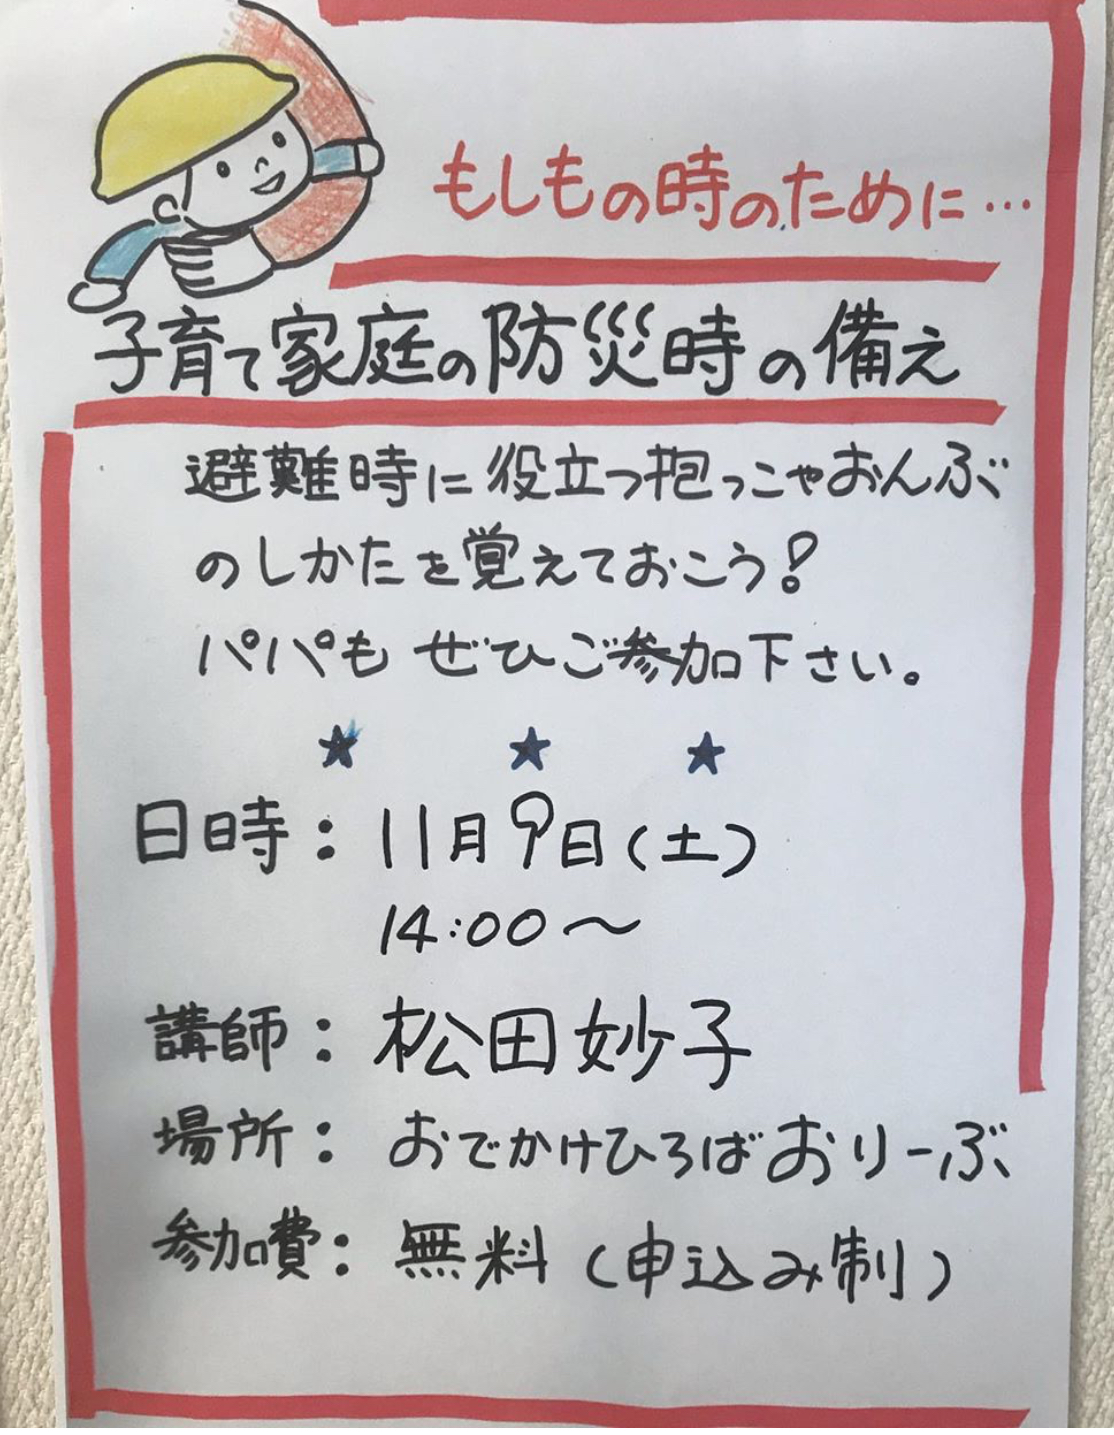 もしもの時のために…
子育て家庭の防災時の備え
避難時に役立つ抱っこやおんぶ
のしかたを覚えておこう！
パパも ぜひご参加下さい。
★ ★ ★
日時：11月9日（土）
14:00〜
講師：松田妙子
場所：おでかけひろばおりーぶ
参加費：無料（申込み制）